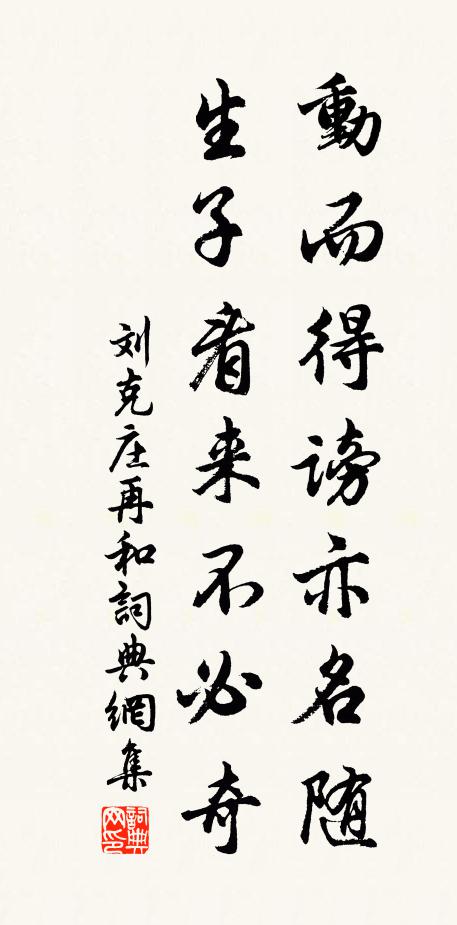 動而得謗亦名随
生子看来不必奇
刘克庄再和詞典網集
詞典
网印